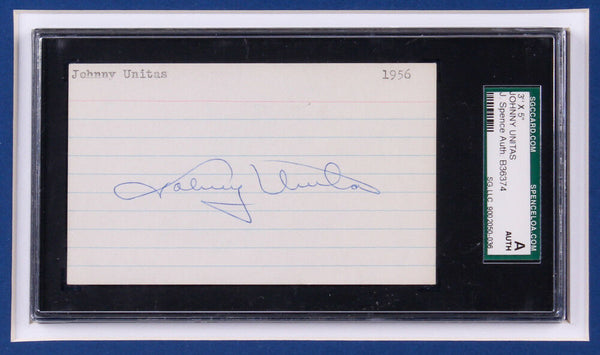 Johnny Unitas 1956
Johnny Unitas
SGCCARD.COM SPENCELOA.COM
3" X 5"
JOHNNY UNITAS
J. Spence Auth B36374
SG LLC 9002050-036
A
AUTH